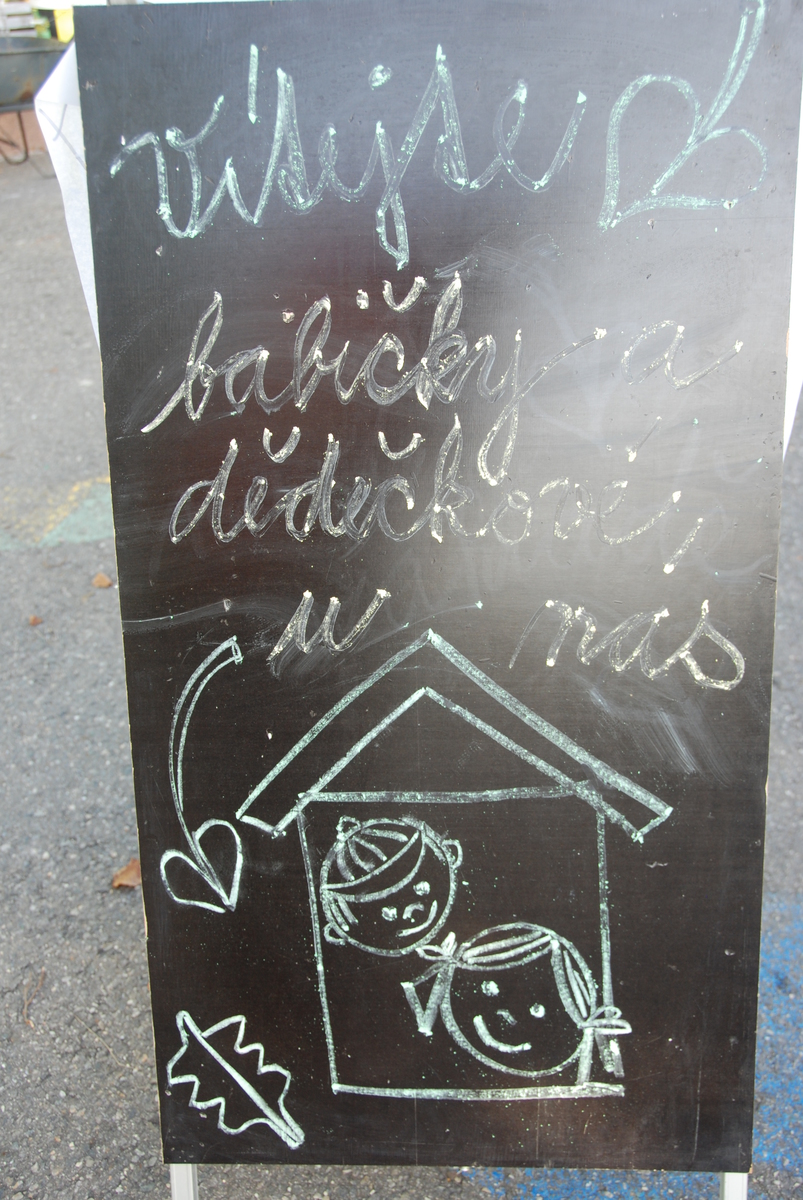 vítejte
babičky a
dědečkové
u nás